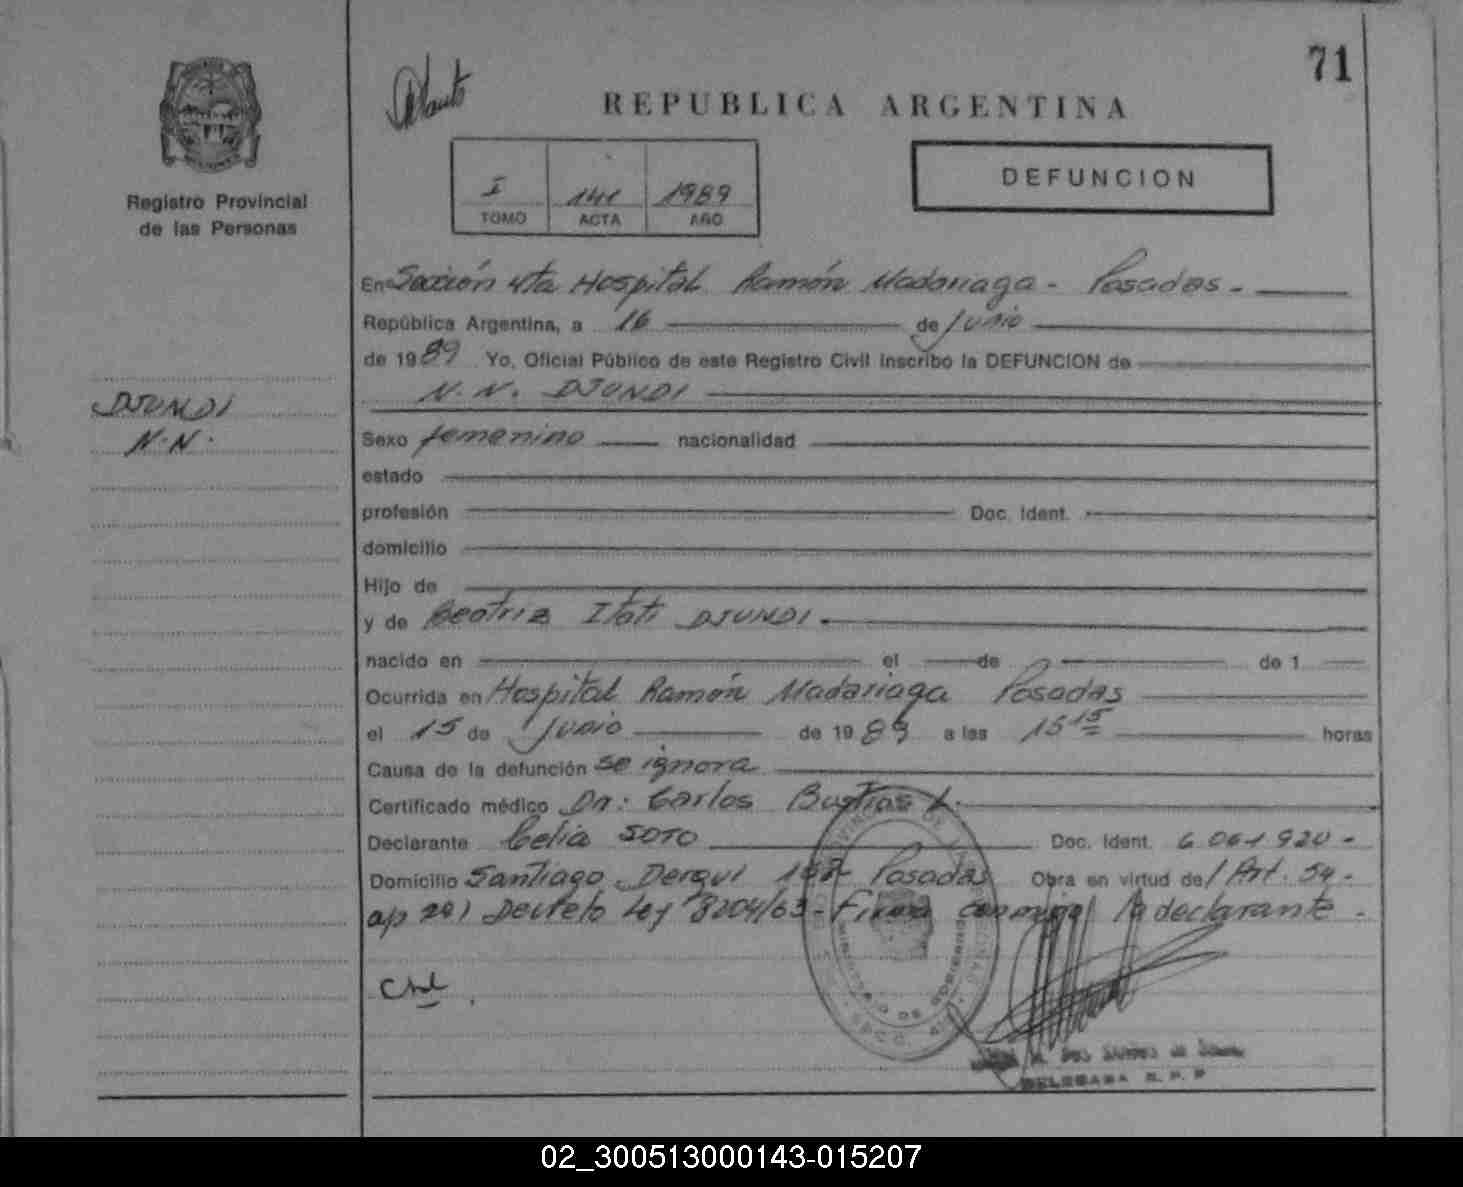 71
REPUBLICA ARGENTINA
Registro Provincial
de las Personas
I 141 1989
TOMO ACTA AÑO
DEFUNCION
En Sección 4ta Hospital Ramón Madariaga - Posadas -
República Argentina, a 16 de Junio
de 1989 Yo, Oficial Público de este Registro Civil inscribo la DEFUNCION de
N. N. DJUNDI
DJUNDI
N.N.
Sexo femenino nacionalidad
estado
profesión Doc. Ident.
domicilio
Hijo de
y de Beatriz Itatí DJUNDI.
nacido en el de de 1
Ocurrida en Hospital Ramón Madariaga Posadas
el 15 de Junio de 1989 a las 15 15 horas
Causa de la defunción se ignora
Certificado médico Dr: Carlos Bustias L.
Declarante Celia SOTO Doc. Ident. 6.061.920-
Domicilio Santiago Derqui Posadas Obra en virtud del Art. 54-
ap 2º) Decreto Ley 8204/63- Firma conmigo la declarante -
DELEGADA R. P. P
02_300513000143-015207